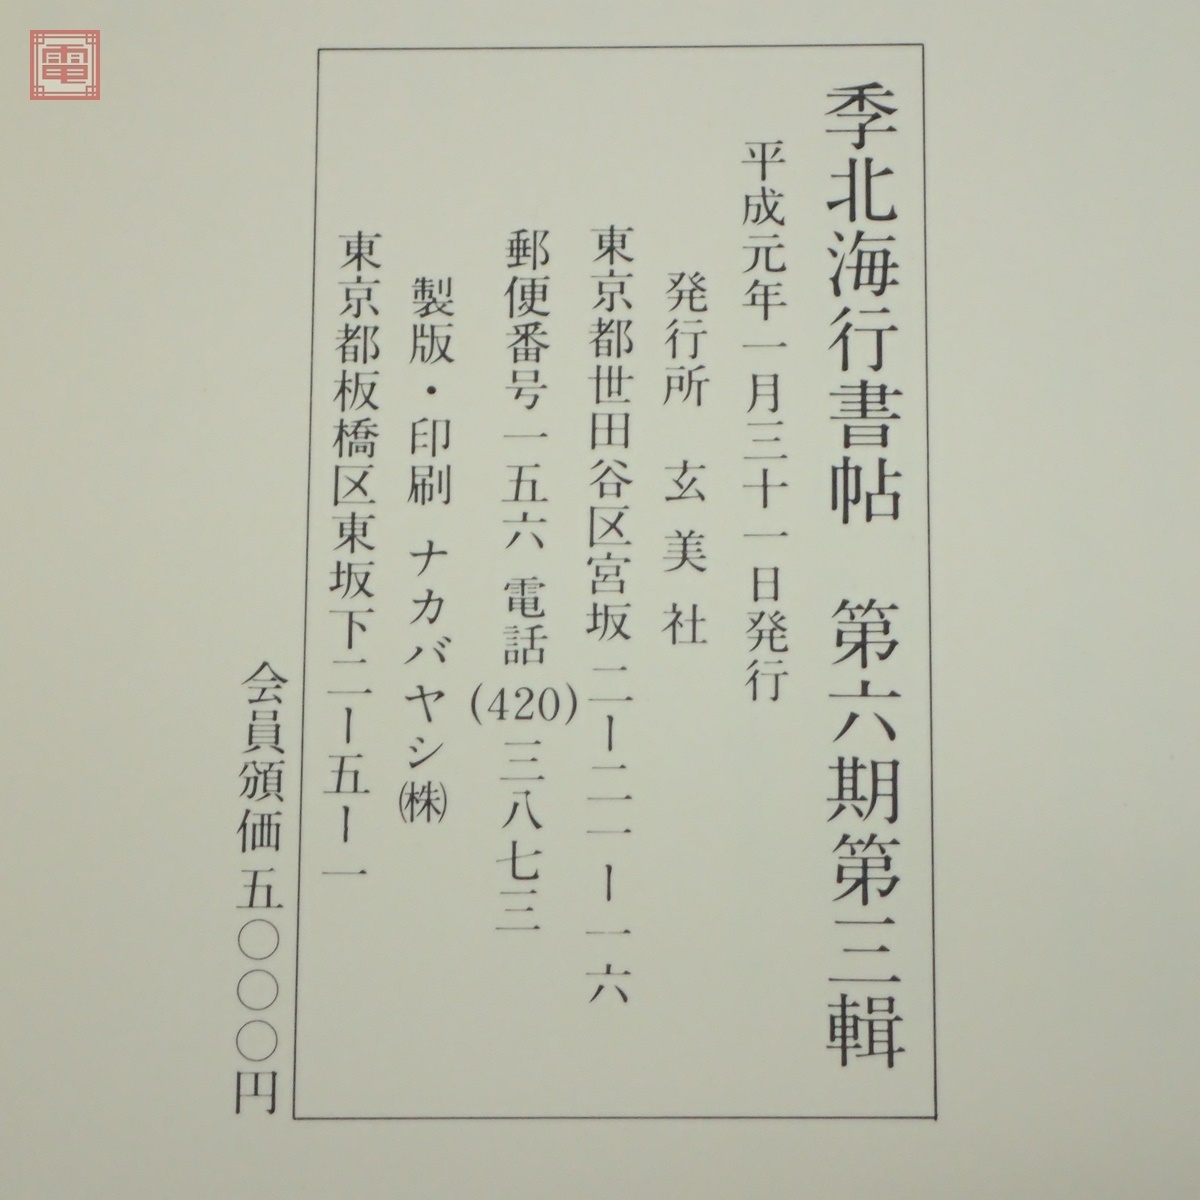 季北海行書帖　第六期第三輯
平成元年一月三十一日発行
発行所　玄美社
東京都世田谷区宮坂二ー二一ー一六
郵便番号一五六 電話(420)三八七三
製版・印刷 ナカバヤシ㈱
東京都板橋区東坂下二ー五ー一
会員頒価 五〇〇〇円
電